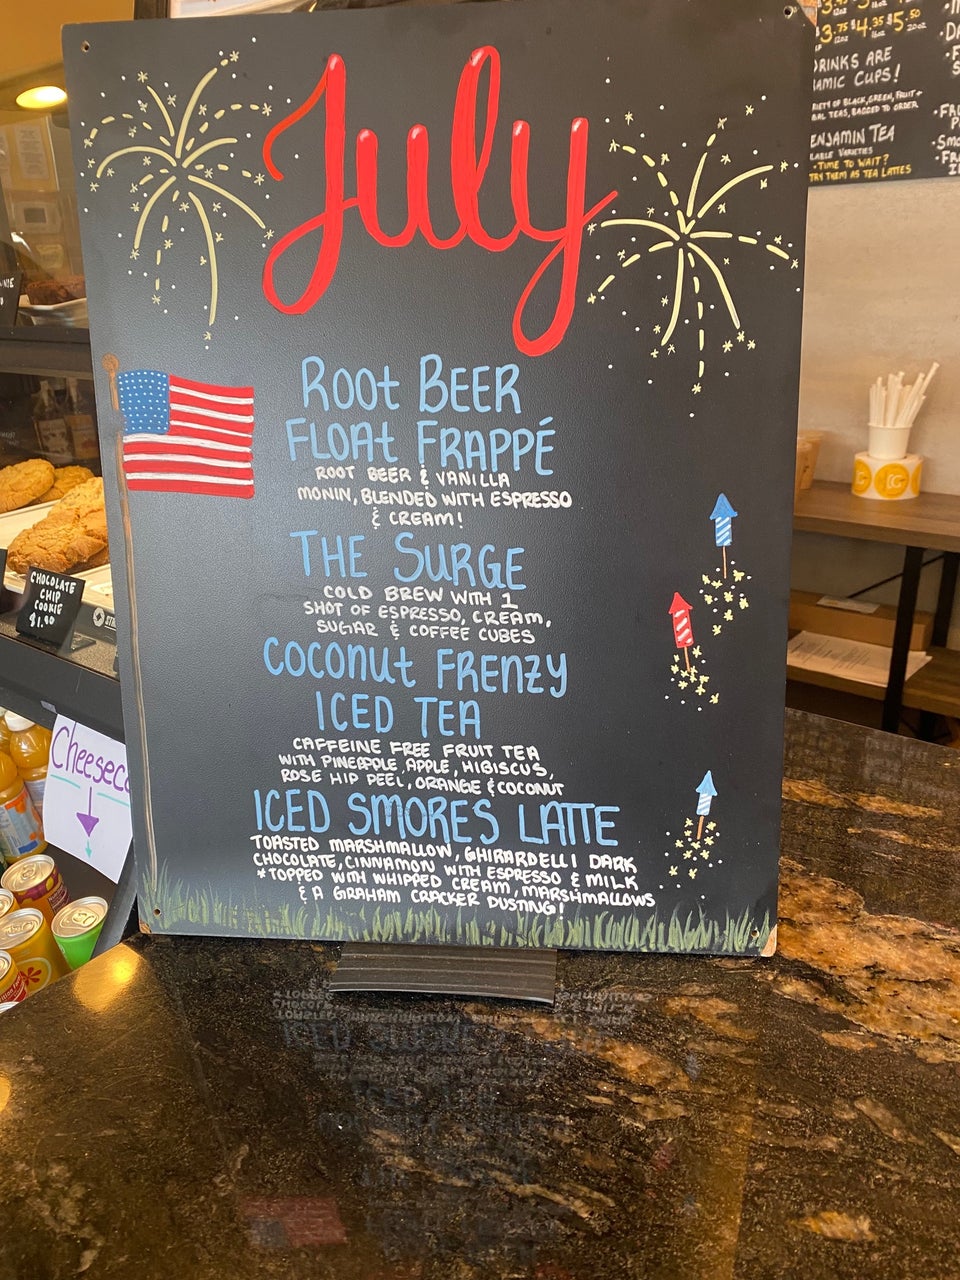 July
Root Beer
Float Frappé
ROOT BEER & VANILLA
MONIN, BLENDED WITH ESPRESSO
& CREAM!
THE SURGE
COLD BREW WITH 1
SHOT OF ESPRESSO, CREAM,
SUGAR & COFFEE CUBES
COCONUT FRENZY
ICED TEA
CAFFEINE FREE FRUIT TEA
WITH PINEAPPLE, APPLE, HIBISCUS,
ROSE HIP PEEL, ORANGE & COCONUT
ICED SMORES LATTE
TOASTED MARSHMALLOW, GHIRARDELLI DARK
CHOCOLATE, CINNAMON WITH ESPRESSO & MILK
*TOPPED WITH WHIPPED CREAM, MARSHMALLOWS
& A GRAHAM CRACKER DUSTING!
CHOCOLATE
CHIP
COOKIE
$1.90
Cheesec
$3.75 $4.35 $5.50
12oz 16oz 20oz
DRINKS ARE
AMIC CUPS!
RIETY OF BLACK, GREEN, FRUIT +
BAL TEAS, BAGGED TO ORDER
ENJAMIN TEA
LABLE VARIETIES
TIME TO WAIT?
TRY THEM AS TEA LATTES